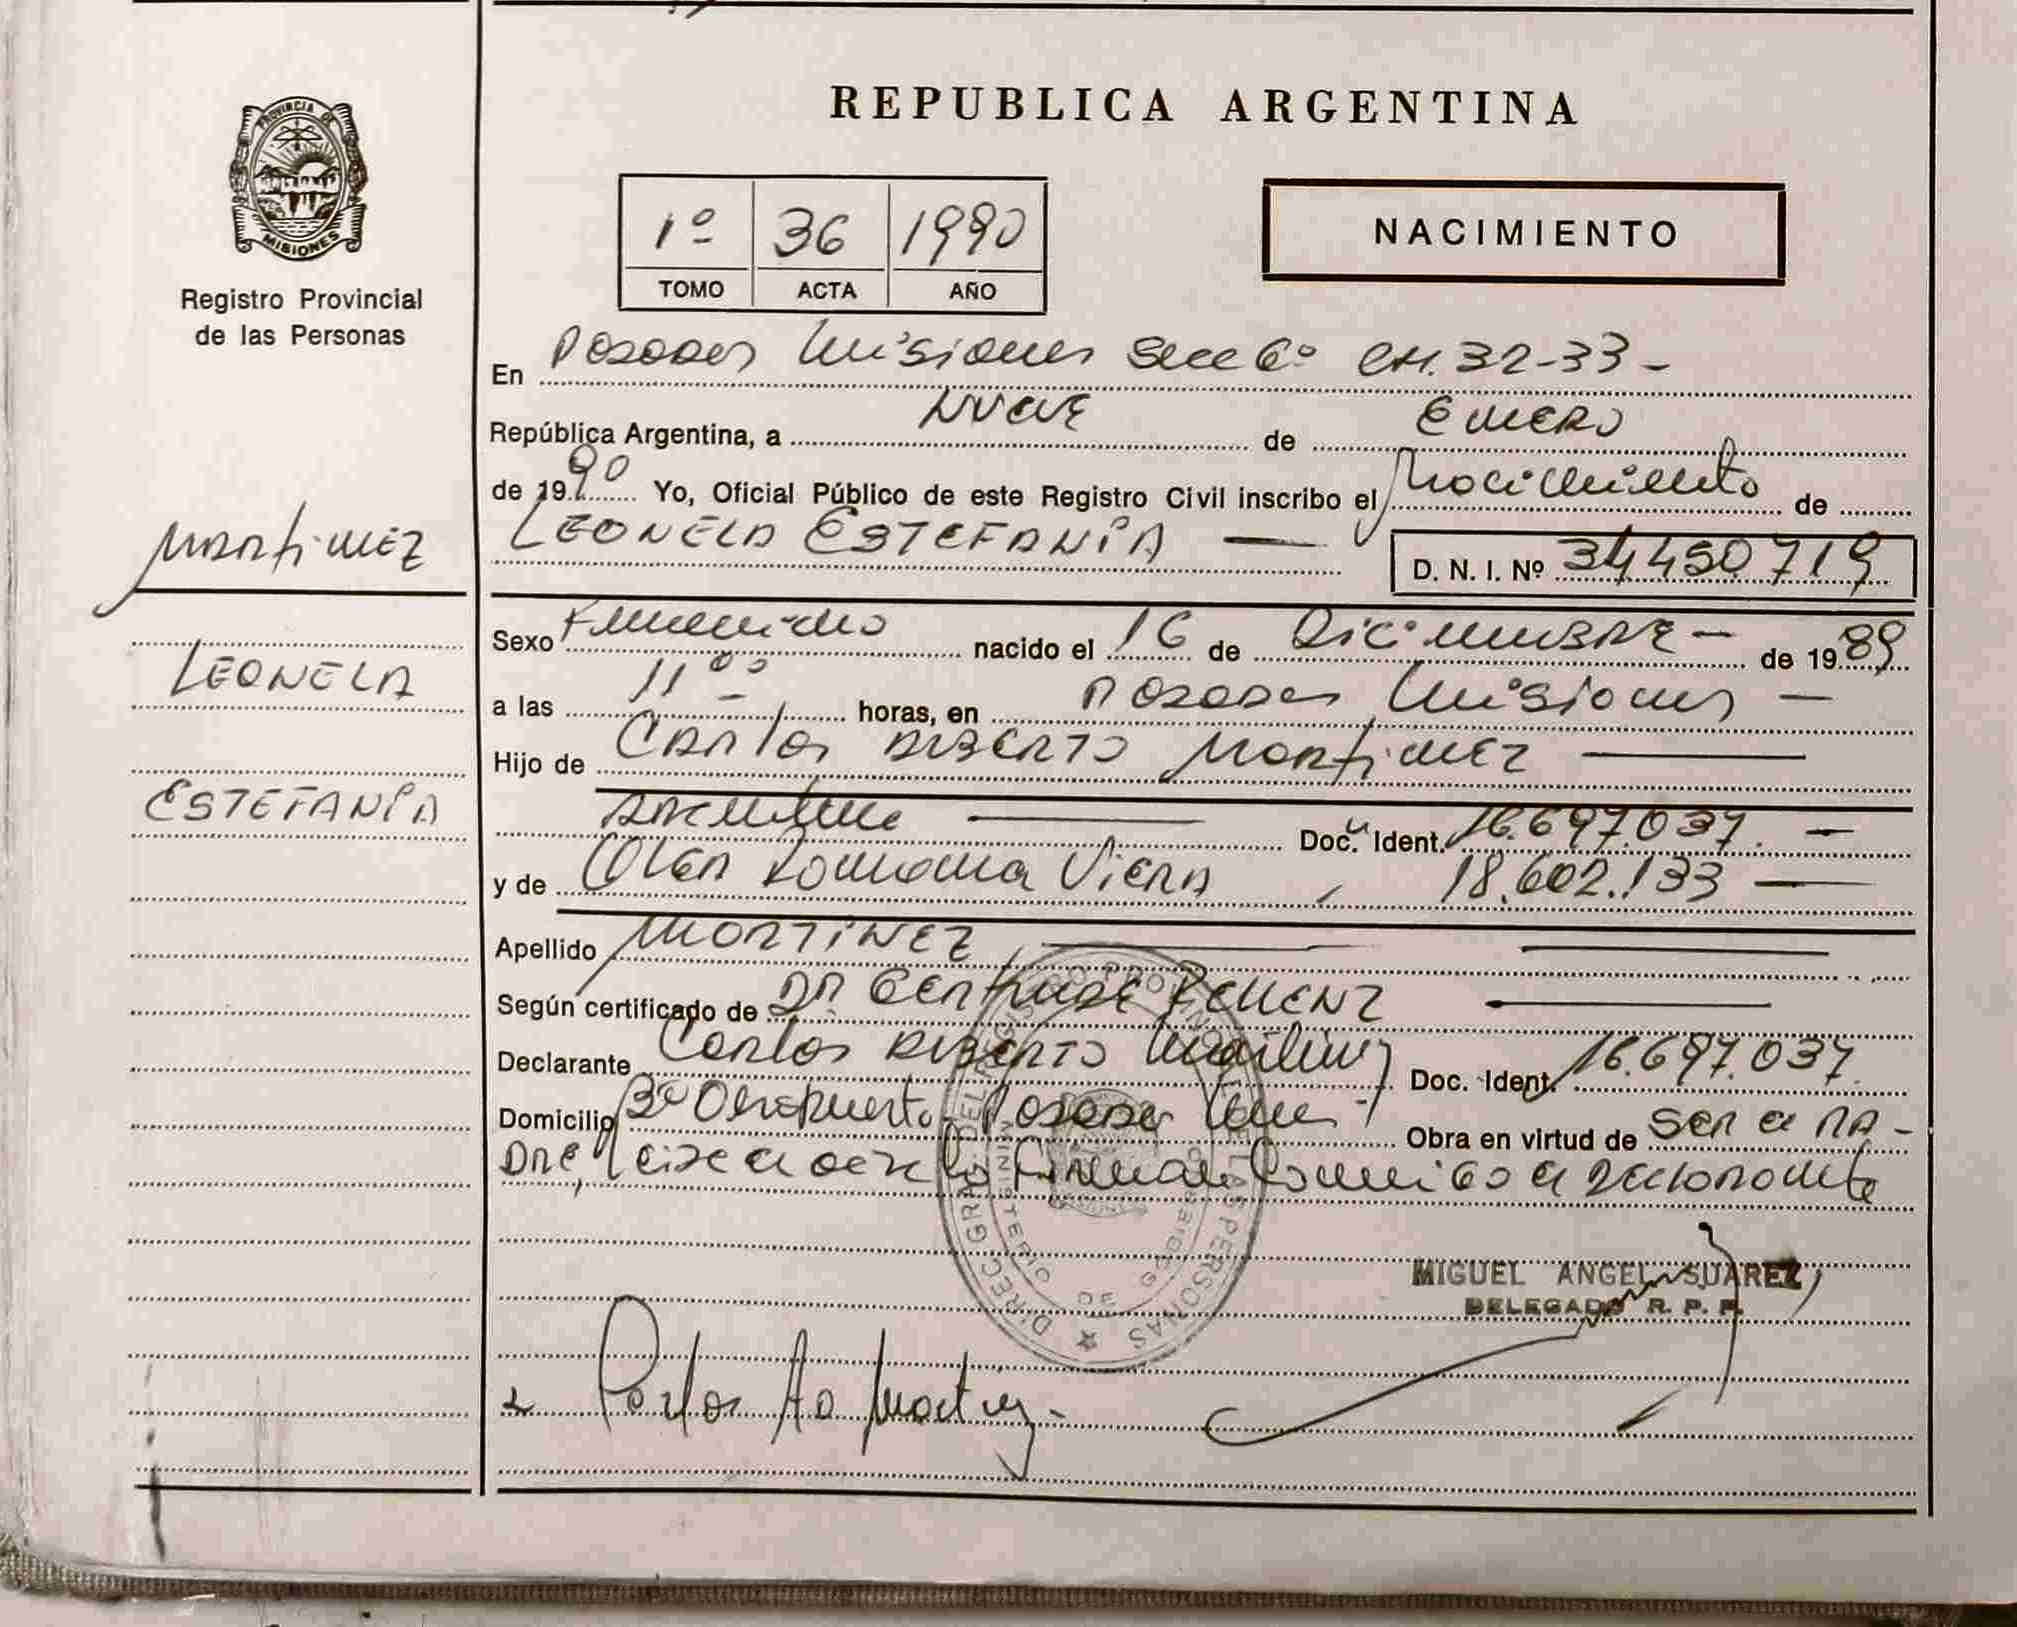 REPUBLICA ARGENTINA
PROVINCIA DE
MISIONES
Registro Provincial
de las Personas
1º 36 1990
TOMO ACTA AÑO
NACIMIENTO
En Posadas Misiones Secc 6º CH. 32-33-
República Argentina, a NUEVE de ENERO
de 1990 Yo, Oficial Público de este Registro Civil inscribo el Nacimiento de
LEONELA ESTEFANIA — D. N. I. Nº 34450719
Martinez
LEONELA
ESTEFANIA
Sexo Femenino nacido el 16 de Diciembre - de 1989
a las 11 00 horas, en Posadas Misiones —
Hijo de Carlos Alberto Martinez —
— Doc. Ident. 16.697.037. —
y de Ramona Viera 18.602.133 —
Apellido MARTINEZ, —
Según certificado de DR. —
Declarante Carlos Alberto Martinez Doc. Ident. 16.697.037.
Domicilio Bº Aeropuerto, Posadas Obra en virtud de ser el PA-
DRE, Conmigo el declarante
DIREC. GRAL. DEL REGISTRO PROVINCIAL DE LAS PERSONAS
MINISTERIO DE GOBIERNO
MIGUEL ANGEL SUAREZ
DELEGADO R. P. P.
Carlos Ao Martinez